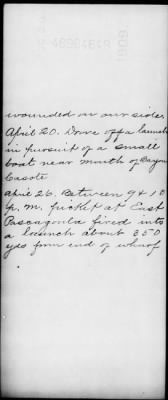 wounded on our side.
April 20. Drove off a launch
in pursuit of a small
boat near mouth of Bayou
Casote
April 26. Between 9 & 10
p.m. picket at East
Pascagoula fired into
a launch about 350
yds from end of wharf